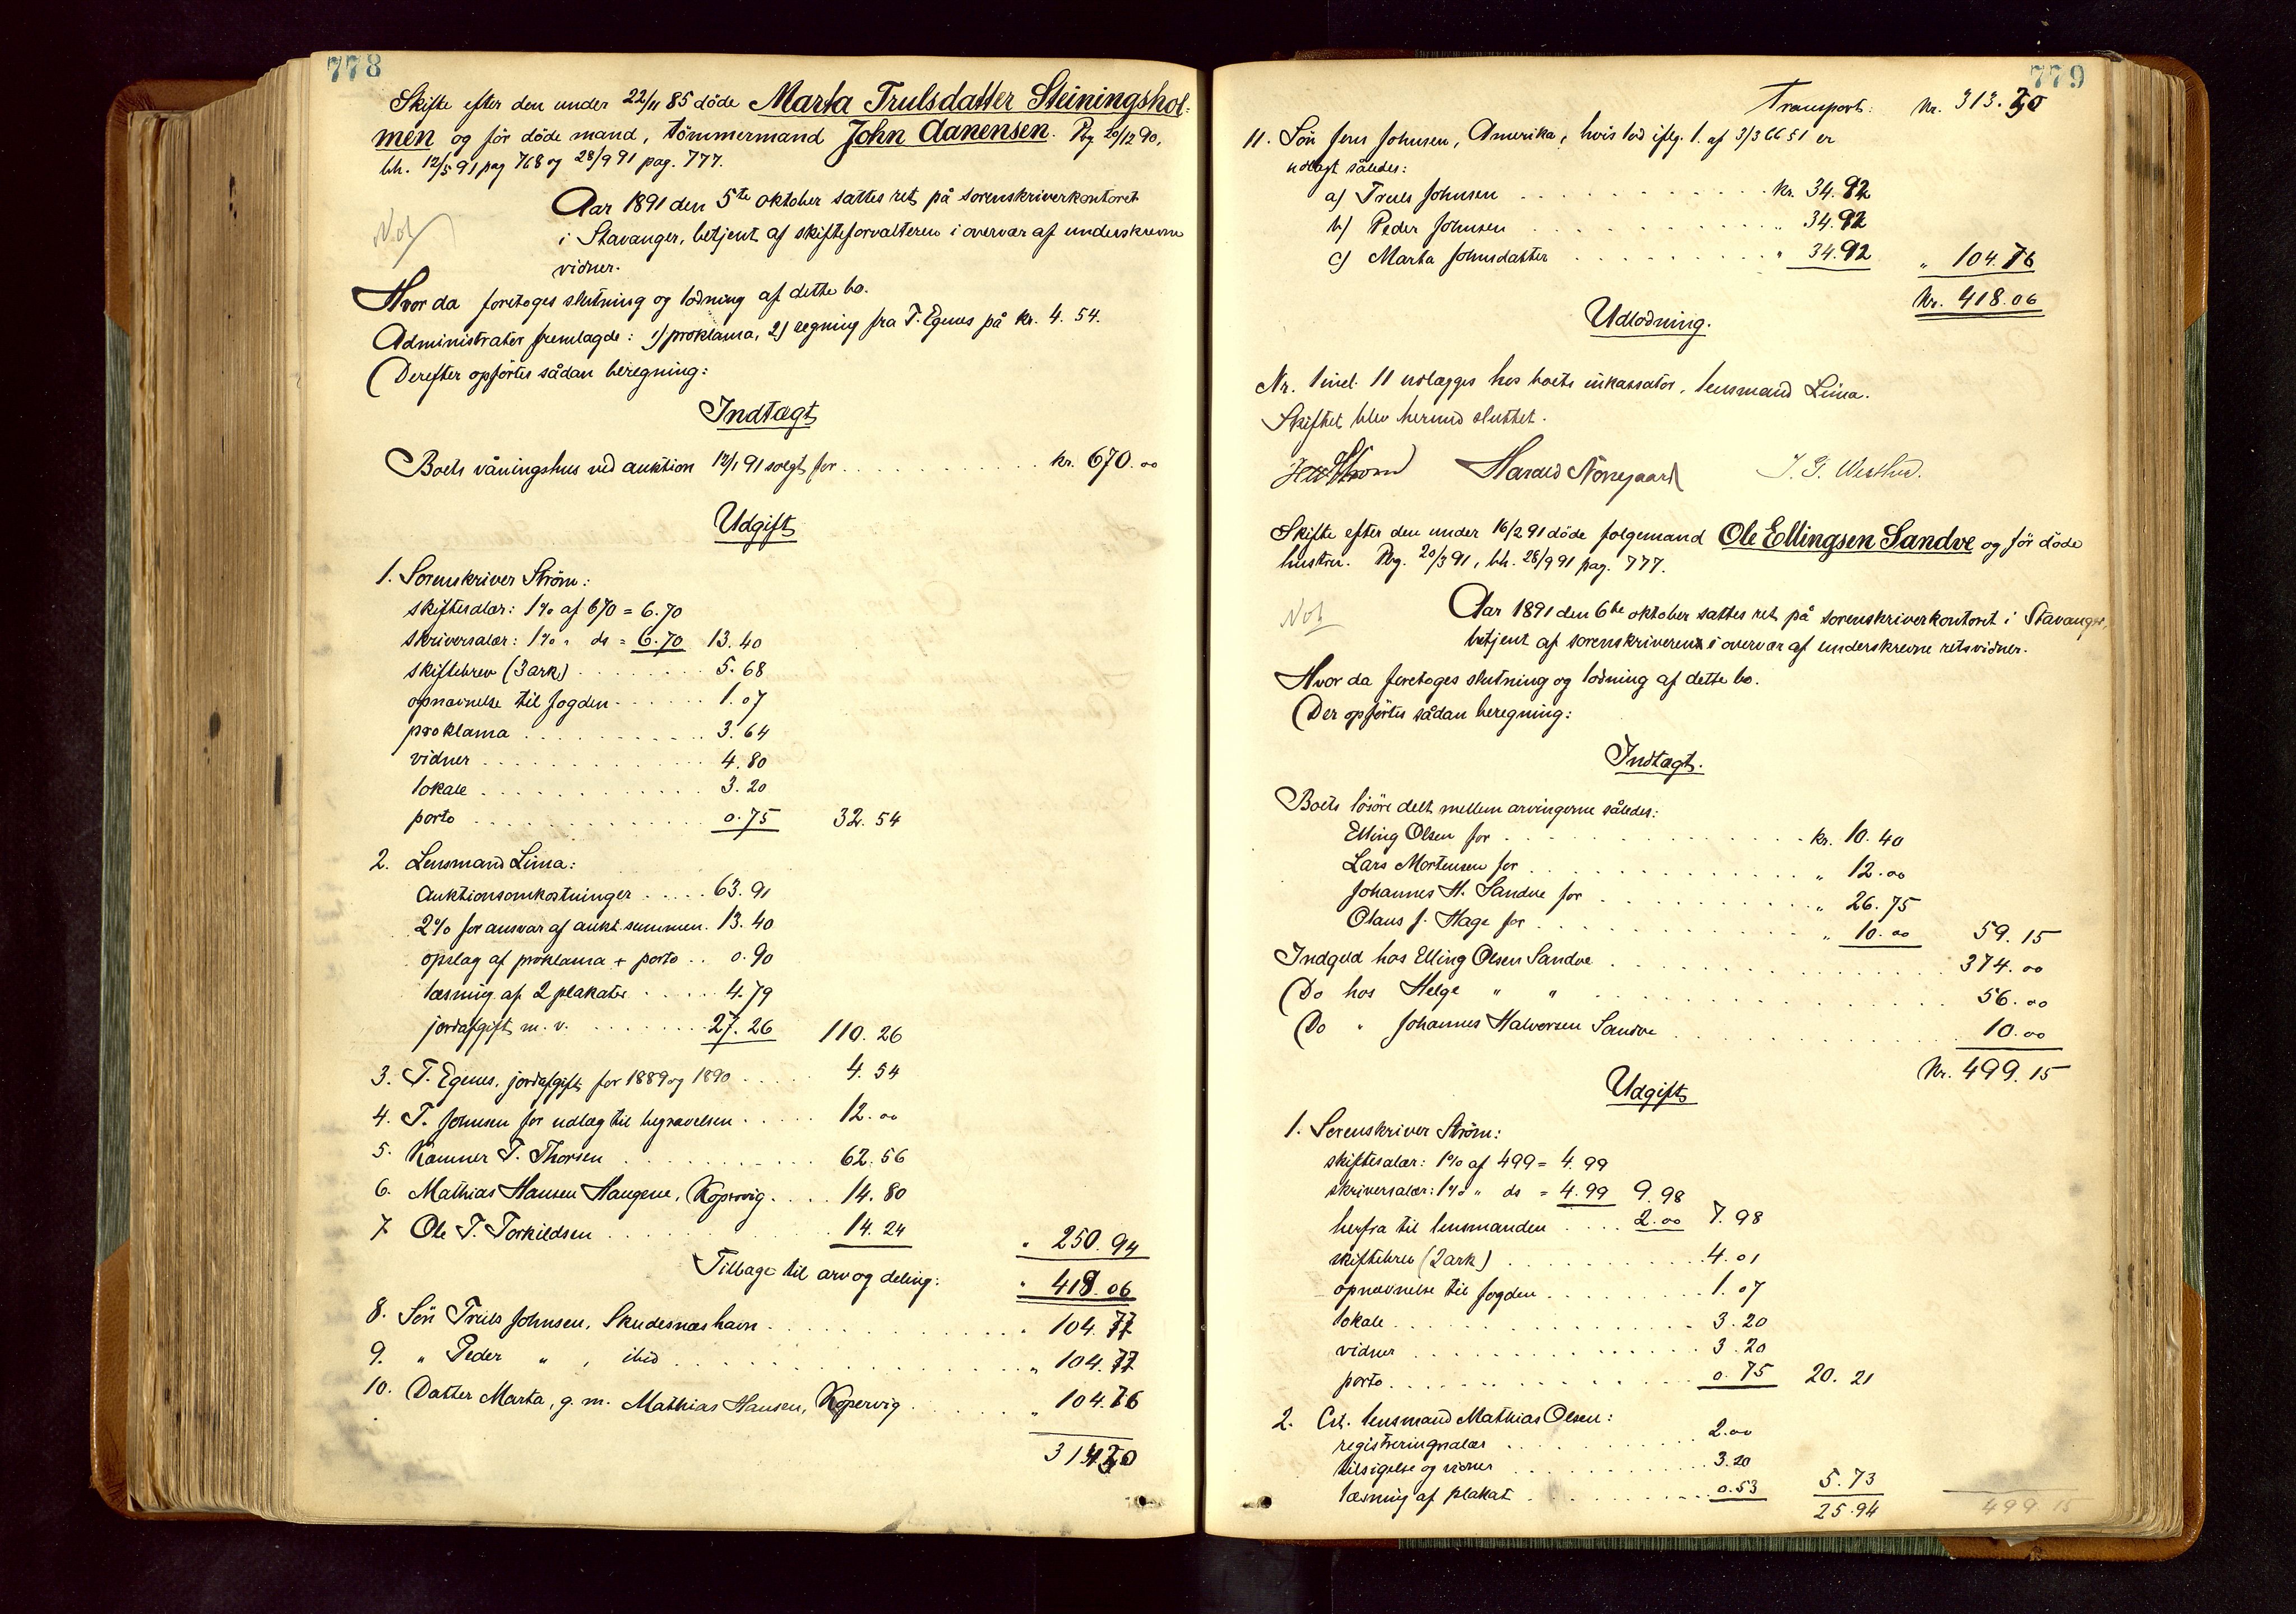 778
Skifte efter den under 22/11 85 döde Marta Trulsdatter Steiningshol-
men og för döde mand, tömmermand John Aanensen. Rg. 20/12 90,
bh. 12/5 91 pag 768 og 28/9 91 pag. 777.
Not
Aar 1891 den 5te oktober sattes ret på sorenskriverkontoret
i Stavanger, betjent af skifteforvalteren i overvær af underskrevne
vidner.
Hvor da foretoges slutning og lodning af dette bo.
Administrator fremlagde: 1) proklama, 2) regning fra T. Egenes på kr. 4.54.
Derefter opførtes sådan beregning:
Indtægt
Boets våningshus ved auktion 12/1 91 solgt for . . . kr. 670.00
Udgift
1. Sorenskriver Ström:
skiftesalær: 1% af 670 = 6.70
skriversalær: 1% " do = 6.70 13.40
skiftebrev (3 ark) . . . 5.68
opnævnelse til fogden . . . 1.07
proklama . . . 3.64
vidner . . . 4.80
lokale . . . 3.20
porto . . . 0.75 32.54
2. Lensmand Lima:
Auktionsomkostninger . . . 63.91
2% for ansvar af aukt. summen. 13.40
opslag af proklama + porto . . 0.90
læsning af 2 plakater . . . 4.79
jordafgift m. v. . . . 27.26 110.26
3. T. Egenes, jordafgift for 1889 og 1890 . . . 4.54
4. T. Johnsen for udlæg til begravelsen . . . 12.00
5. Kæmner T. Thorsen . . . 62.56
6. Mathias Hansen Haugene, Kopervig . . . 14.80
7. Ole T. Torkildsen . . . 14.24 " 250.94
Tilbage til arv og deling: " 418.06
8. Sön Truls Johnsen, Skudesneshavn . . . " 104.77
9. " Peder " , ibid . . . " 104.77
10. Datter Marta, g. m. Mathias Hansen, Kopervig . . . " 104.76
314.30
779
Transport: Kr. 313.30
11. Sön Jens Johnsen, Amerika, hvis lod iflg. l. af 3/3 66 § 1 er
udlagt således:
a) Truls Johnsen . . . kr. 34.92
b) Peder Johnsen . . . " 34.92
c) Marta Johnsdatter . . . " 34.92 " 104.76
Kr. 418.06
Udlodning.
Nr. 1 incl. 11 udlægges hos boets inkassator, lensmand Lima.
Skiftet blev hermed sluttet.
Ström Harald Norregaard
Skifte efter den under 16/2 91 döde folgemand Ole Ellingsen Sandve og för döde
hustru. Rg. 20/3 91, bh. 28/9 91 pag. 777.
Not
Aar 1891 den 6te oktober sattes ret på sorenskriverkontoret i Stavanger,
betjent af sorenskriveren i overvær af underskrevne retsvidner.
Hvor da foretoges slutning og lodning af dette bo.
Der opførtes sådan beregning:
Indtægt.
Boets lösöre delt mellem arvingerne således:
Elling Olsen for . . . kr. 10.40
Lars Mortensen for . . . " 12.00
Johannes H. Sandve for . . . " 26.75
Olaus J. Hage for . . . " 10.00 59.15
Indgæld hos Elling Olsen Sandve . . . 374.00
Do hos Helge " " . . . 56.00
Do " Johannes Halvorsen Sandve . . . 10.00
Kr. 499.15
Udgift
1. Sorenskriver Ström:
skiftesalær: 1% af 499 = 4.99
skriversalær: 1% " do = 4.99 9.98
herfra til lensmanden . . . 2.00 7.98
skiftebrev (2 ark) . . . 4.01
opnævnelse til fogden . . . 1.07
lokale . . . 3.20
vidner . . . 3.20
porto . . . 0.75 20.21
2. Cst. lensmand Mathias Olsen:
registreringsalær . . . 2.00
tilsigelse og vidner . . . 3.20
læsning af plakat . . . 0.53 5.73
25.94 499.15